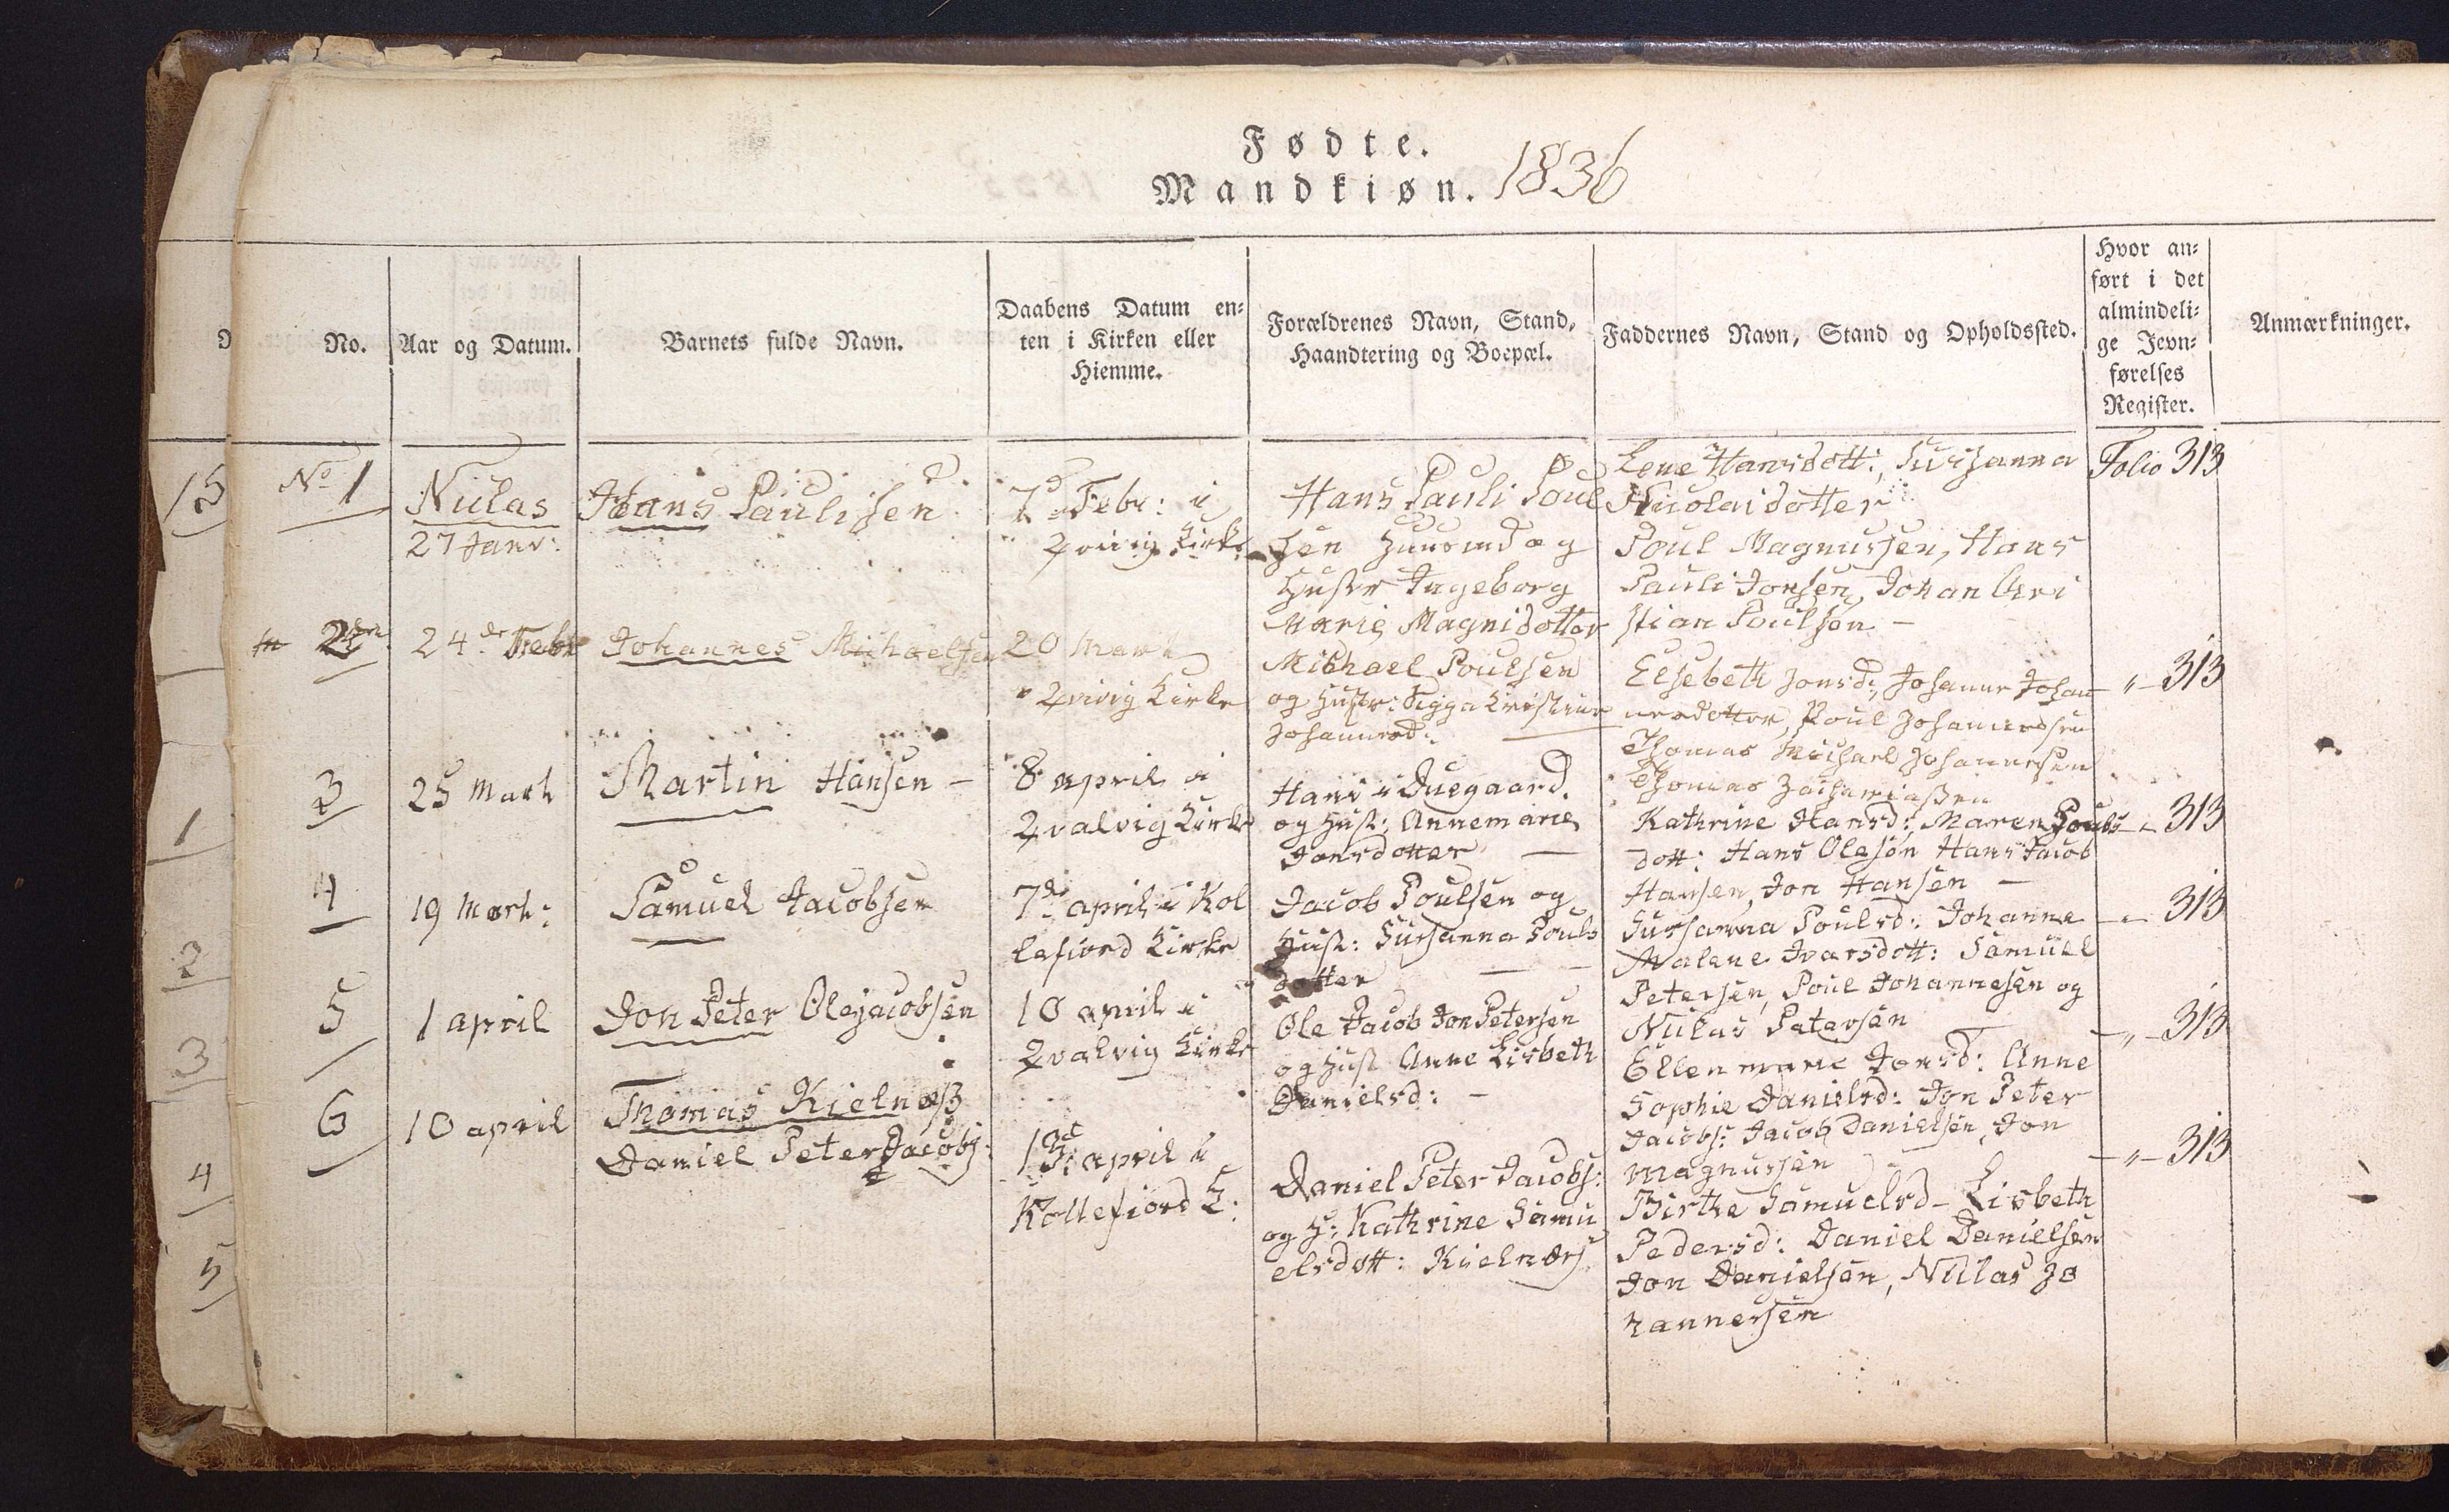 Fødte.
Mandkiøn. 1836
No.
Aar og Datum.
Barnets fulde Navn.
Daabens Datum en-
ten i Kirken eller
Hiemme.
Forældrenes Navn, Stand,
Haandtering og Boepæl.
Faddernes Navn, Stand og Opholdssted.
Hvor an-
ført i det
almindeli-
ge Jevn-
førelses
Register.
Anmærkninger.
No 1
Niclas
27 Janv:
Hans Paulisen
7d Febr: i
Qvivig Kirke
Hans Pauli Poul
sen Huusmd og
Hustr Ingeborg
Marie Magnidotter
Lene Hansdott:, Susanna
Nicolaidotter
Poul Magnussen, Hans
Pauli Jonsen, Johan Chri
stian Poulsen -
Folio 313
2
24de Febr
Johannes Michaelsen
20 Marts
Qvivig Kirke
Michael Poulsen
og Hustr: Sigga Kristine
Johannesd:
Elsebeth Jonsd:, Johanne Johan
nesdotter, Poul Johannessen
Thomas Michael Johannesen
Thomas Zachariassen
" 313
3
25 Marts
Martin Hansen -
8 april i
Qvalvig Kirke
Hans i Duegaard.
og Hust: Annemarie
Jonsdotter -
Kathrine Hansd: Maren Pouls
dott: Hans Olesen Hans Jacob
Hansen, Jon Hansen -
" 313
4
19 Marts:
Samuel Jacobsen
7de april i Kol
lefiord Kirke
Jacob Poulsen og
Hust: Susanna Pouls
dotter - -
Susanna Poulsd: Johanne
Malene Ivarsdott: Samuel
Petersen, Poul Johannesen og
Niclas Petersen
" 313
5
1 april
Jon Peter Olejacobsen
10 april i
Qvalvig Kirke
Ole Jacob Jon Petersen
og Hust Anne Lisbeth
Danielsd: -
Ellen marie Jonsd: Anne
Sophie Danielsd: Jon Peter
Jacobs: Jacob Danielsen, Jon
Magnussen
" 313
6
10 april
Thomas Kielnæss
Daniel Peter Jacobs:
april i
Kollefiord K:
Daniel Peter Jacobs:
og H: Kathrine Samu
elsdott: Kielnæs
Birthe Samuelsd - Lisbeth
Pedersd: Daniel Danielsen
Jon Danielsen, Niclas Jo
hannesen
" 313
15
1
2
3
4
5